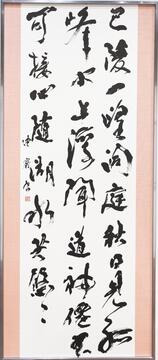 巴陵一望洞庭秋日見孤
峰水上浮聞道神僊不
可接心隨湖水共悠々